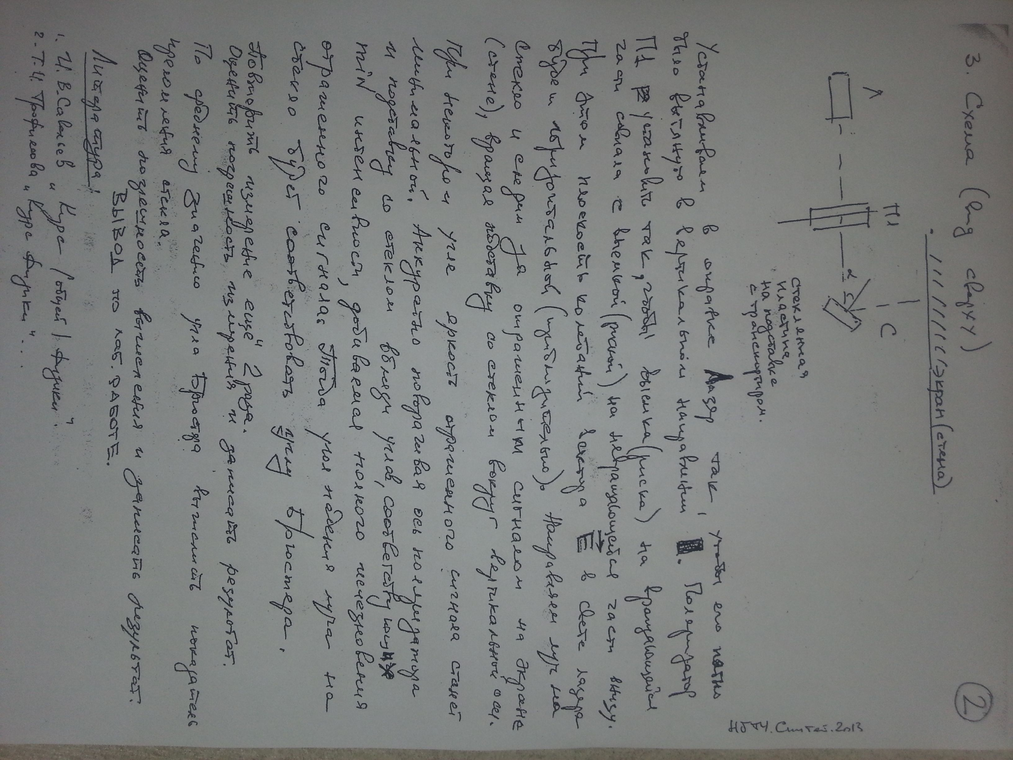 2
НТТУ.Синтез.2013
3. Схема (вид сверху)
Л
П1
экран (стена)
α
С
стеклянная
пластина
на подставке
с транспортиром.
Устанавливаем в оправке лазер так, чтобы его пятно
было вытянуто в вертикальном направлении. Поляризатор
П1 установить так, чтобы выемка (риска) на вращающейся
части совпала с выемкой (риской) на невращающейся части внизу.
При этом плоскость колебаний вектора E в свете лазера
будет горизонтальной (приблизительно). Направляем луч на
стекло и следим за отраженным сигналом на экране
(стене), вращая подставку со стеклом вокруг вертикальной оси.
При некотором угле яркость отраженного сигнала станет
минимальной. Аккуратно поворачивая ось поляризатора
и подставку со стеклом вблизи углов, соответствующих
min интенсивности, добиваемся полного исчезновения
отраженного сигнала. Тогда угол падения луча на
стекло будет соответствовать углу Брюстера.
Повторить измерение ещё 2 раза.
Оценить погрешность измерения и записать результат.
По среднему значению угла Брюстера вычислить показатель
преломления стекла.
Оценить погрешность вычисления и записать результат.
ВЫВОД по лаб. РАБОТЕ.
Литература:
1. И.В. Савельев "Курс общей физики".
2. Т.И. Трофимова "Курс физики"...